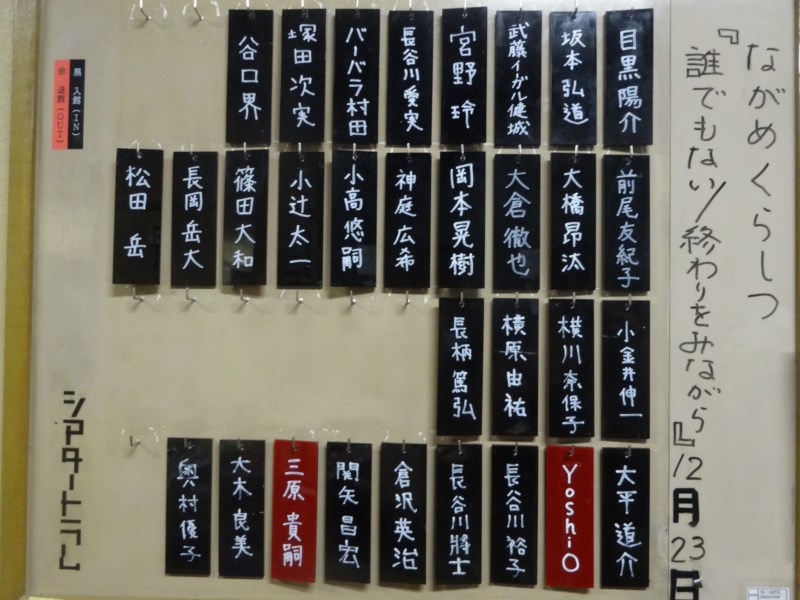 ながめくらしつ
『誰でもない/終わりをみながら』12月23日
目黒陽介
坂本弘道
武藤イーガル健城
宮野玲
長谷川愛実
バーバラ村田
塚田次実
谷口界
前尾友紀子
大橋昂汰
大倉徹也
岡本晃樹
神庭広希
小高悠嗣
小辻太一
篠田大和
長岡岳大
松田岳
小金井伸一
横川奈保子
横原由祐
長柄篤弘
大平道介
YoshiO
長谷川裕子
長谷川將士
倉沢英治
関矢昌宏
三原貴嗣
大木良美
奥村優子
黒 入館(IN)
赤 退館(OUT)
シアタートラム